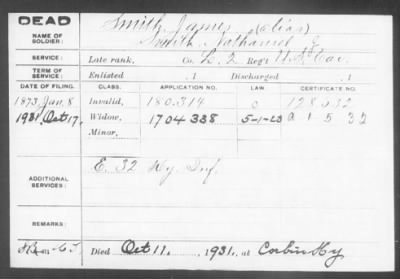 DEAD
NAME OF SOLDIER:
Smith, James (alias)
Smith, Nathaniel
SERVICE:
Late rank, Co. L. 2 Reg't U.S. Cav.
TERM OF SERVICE:
Enlisted , 1 Discharged , 1
DATE OF FILING. CLASS. APPLICATION NO. LAW. CERTIFICATE NO.
1873, Jan. 8 Invalid, 180.314
1931, Oct 17. Widow, 1704338 5-1-20 a 1 5 32
Minor,
ADDITIONAL SERVICES:
E. 32 Ky Inf.
REMARKS:
Died Oct 11, 1931, at Corbin Ky